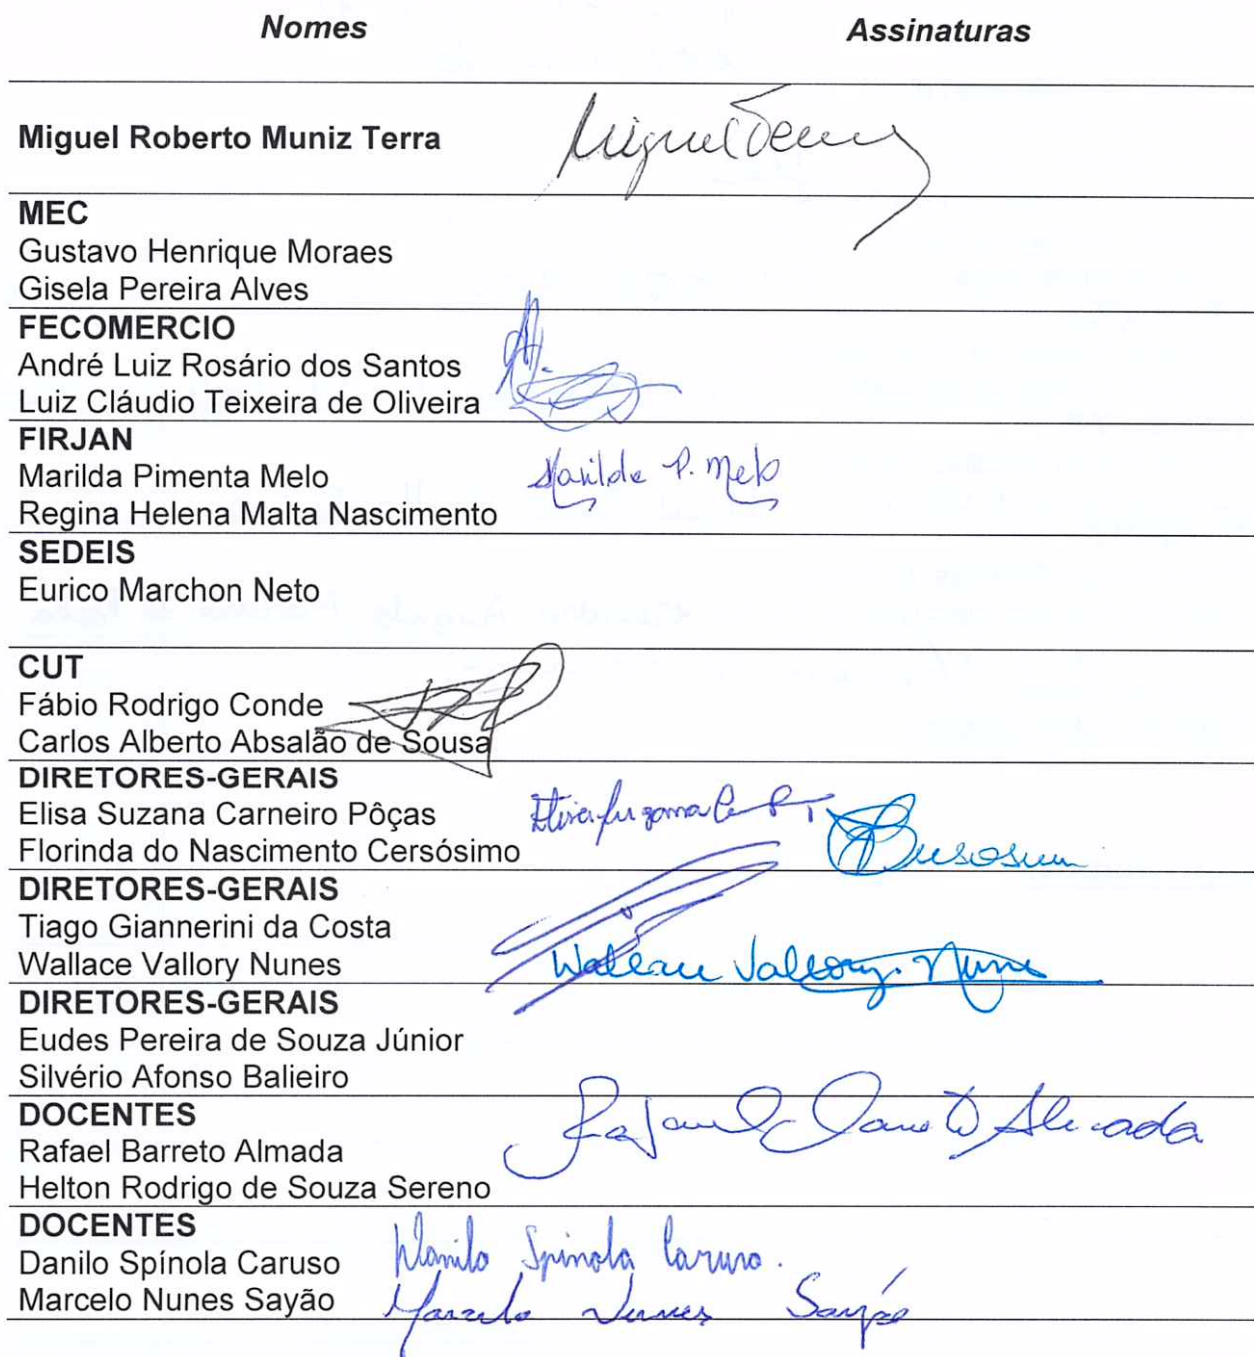 Nomes Assinaturas
Miguel Roberto Muniz Terra Miguel Terra
MEC
Gustavo Henrique Moraes
Gisela Pereira Alves
FECOMERCIO
André Luiz Rosário dos Santos
Luiz Cláudio Teixeira de Oliveira
FIRJAN
Marilda Pimenta Melo Marilda P. Melo
Regina Helena Malta Nascimento
SEDEIS
Eurico Marchon Neto
CUT
Fábio Rodrigo Conde
Carlos Alberto Absalão de Sousa
DIRETORES-GERAIS
Elisa Suzana Carneiro Pôças Elisa Suzana C. P.
Florinda do Nascimento Cersósimo
DIRETORES-GERAIS
Tiago Giannerini da Costa
Wallace Vallory Nunes Wallace Vallory Nunes
DIRETORES-GERAIS
Eudes Pereira de Souza Júnior
Silvério Afonso Balieiro
DOCENTES
Rafael Barreto Almada Rafael Barreto Almada
Helton Rodrigo de Souza Sereno
DOCENTES
Danilo Spínola Caruso Danilo Spinola Caruso.
Marcelo Nunes Sayão Marcelo Nunes Sayão